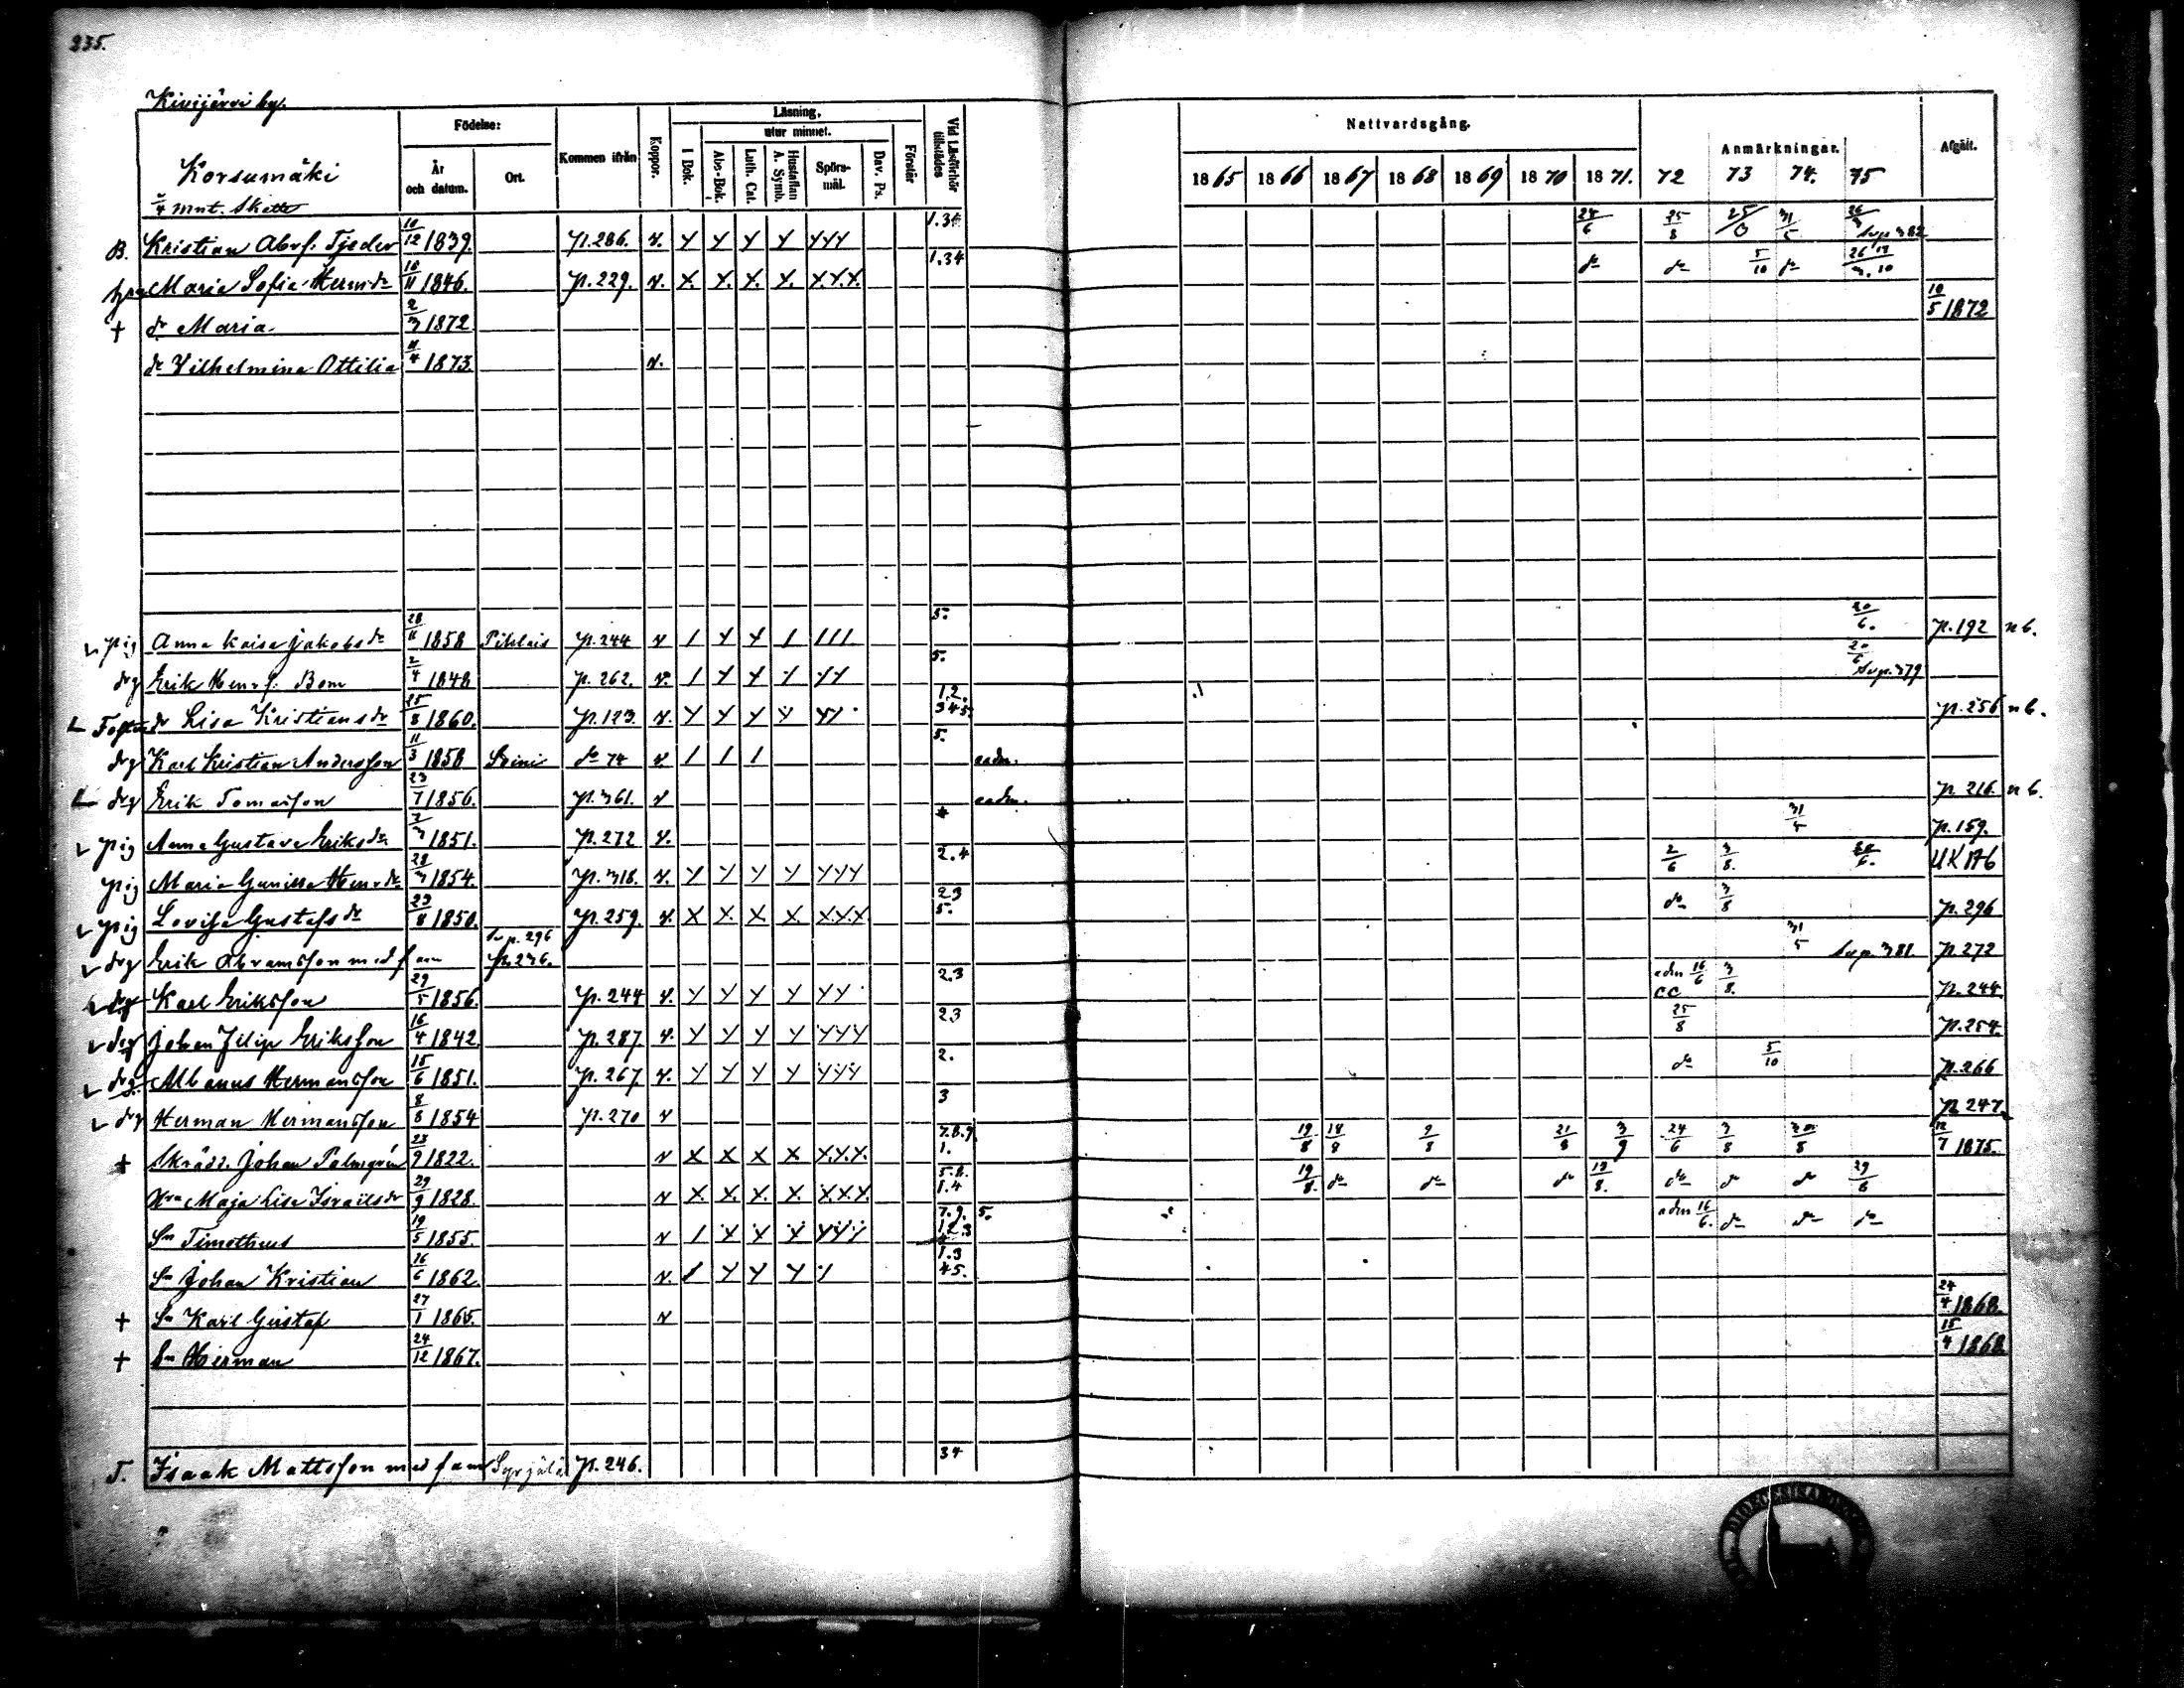 235.
Kivijärvi by.
Korsumäki
3/4 mnt. Skatte
Födelse:
År och datum.
Ort.
Kommen ifrån
Koppor.
Läsning,
I Bok.
utur minnet.
Abc-Bok.
Luth. Cat.
Hustaflan A. Symb.
Spörsmål.
Dav. Ps.
Förstår
Vid Läsförhör tillstädes
Nattvardsgång.
1865 1866 1867 1868 1869 1870 1871.
Anmärkningar.
72 73 74. 75
Afgått.
B. Kristian Abr.s. Tjeder 10/12 1839. p.286. v. 1.34 24/6 25/8 31/5 Se p. 382
Maria Sofia Herm.dr 10/11 1846. p.229. v. X. X. X. X. X.X.X. 1.34 do do 5/10 do
+ dr Maria 2/3 1872 10/5 1872
dr Vilhelmina Ottilia 4/4 1873. v.
pig Anna Kaisa Jakobsdr 28/11 1858 p.244 v 5. 20/6. p.192 n6.
drg Erik Henr.s. Bom 2/4 1848 p.262. v. 5. 20/6 Se p.379
dr Lisa Kristiansdr 25/8 1860. p.123. v. 1.2. 345. p.256 n6.
drg Karl Kristian Andersson 11/3 1858 do 74 v. 1 1 1 5. eadm.
drg Erik Tomasson 23/7 1856. p.361. v eadm. p.216 n6.
pig Anna Gustava Eriksdr 7/3 1851. p.272 v. p.159.
pig Maria Gunilla Henr.dr 28/3 1854. p.318. v. 2.4 2/6 3/8.
pig Lovisa Gustafsdr 23/8 1850. p.259. v. X X. X. X. X.X.X. 23 5. do 3/8 p.296
drg Erik Abramsson med fam Se p. 296 p.236. 31/5 Se p. 381. p.272
drg Karl Eriksson 29/5 1856. p.244 v. 2.3 adm 16/6 cc 3/8. p.244
drg Johan Filip Eriksson 16/4 1842. p.287 v. 23 25/8 p.254.
drg Albanus Hermansson 15/6 1851. p.267. v. 2. do 5/10 p.266
drg Herman Hermansson 8/8 1854 p.270 v 3 p. 247
+ Skräd. Johan Palmgrén 23/9 1822. v X X X X X.X.X. 7.8.9. 1. 19/8 18/8 9/8 21/8 3/9 24/6 3/8 12/7 1875.
Maja Lisa Israelsdr 29/9 1828. v X. X. X. X. X.X.X. 5.8. 1.4 19/8. do do do 19/8. do do do 29/6
Sn Timotheus 19/5 1855. v 7.9. 5. adm 16/6. do do do
Sn Johan Kristian 26/6 1862. v. 1.3 45.
+ Sn Karl Gustaf 27/1 1865. v 24/4 1868.
+ Sn Herman 24/12 1867. 15/4 1868
T. Isaak Mattsson med fam Syrjälä p.246. 34